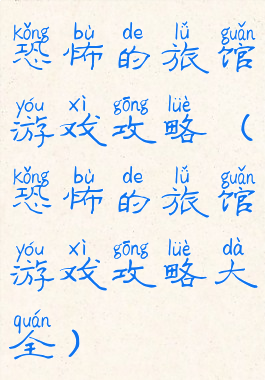 kǒng bù de lǚ guǎn
恐怖的旅馆
yóu xì gōng lüè
游戏攻略（
kǒng bù de lǚ guǎn
恐怖的旅馆
yóu xì gōng lüè dà
游戏攻略大
quán
全）